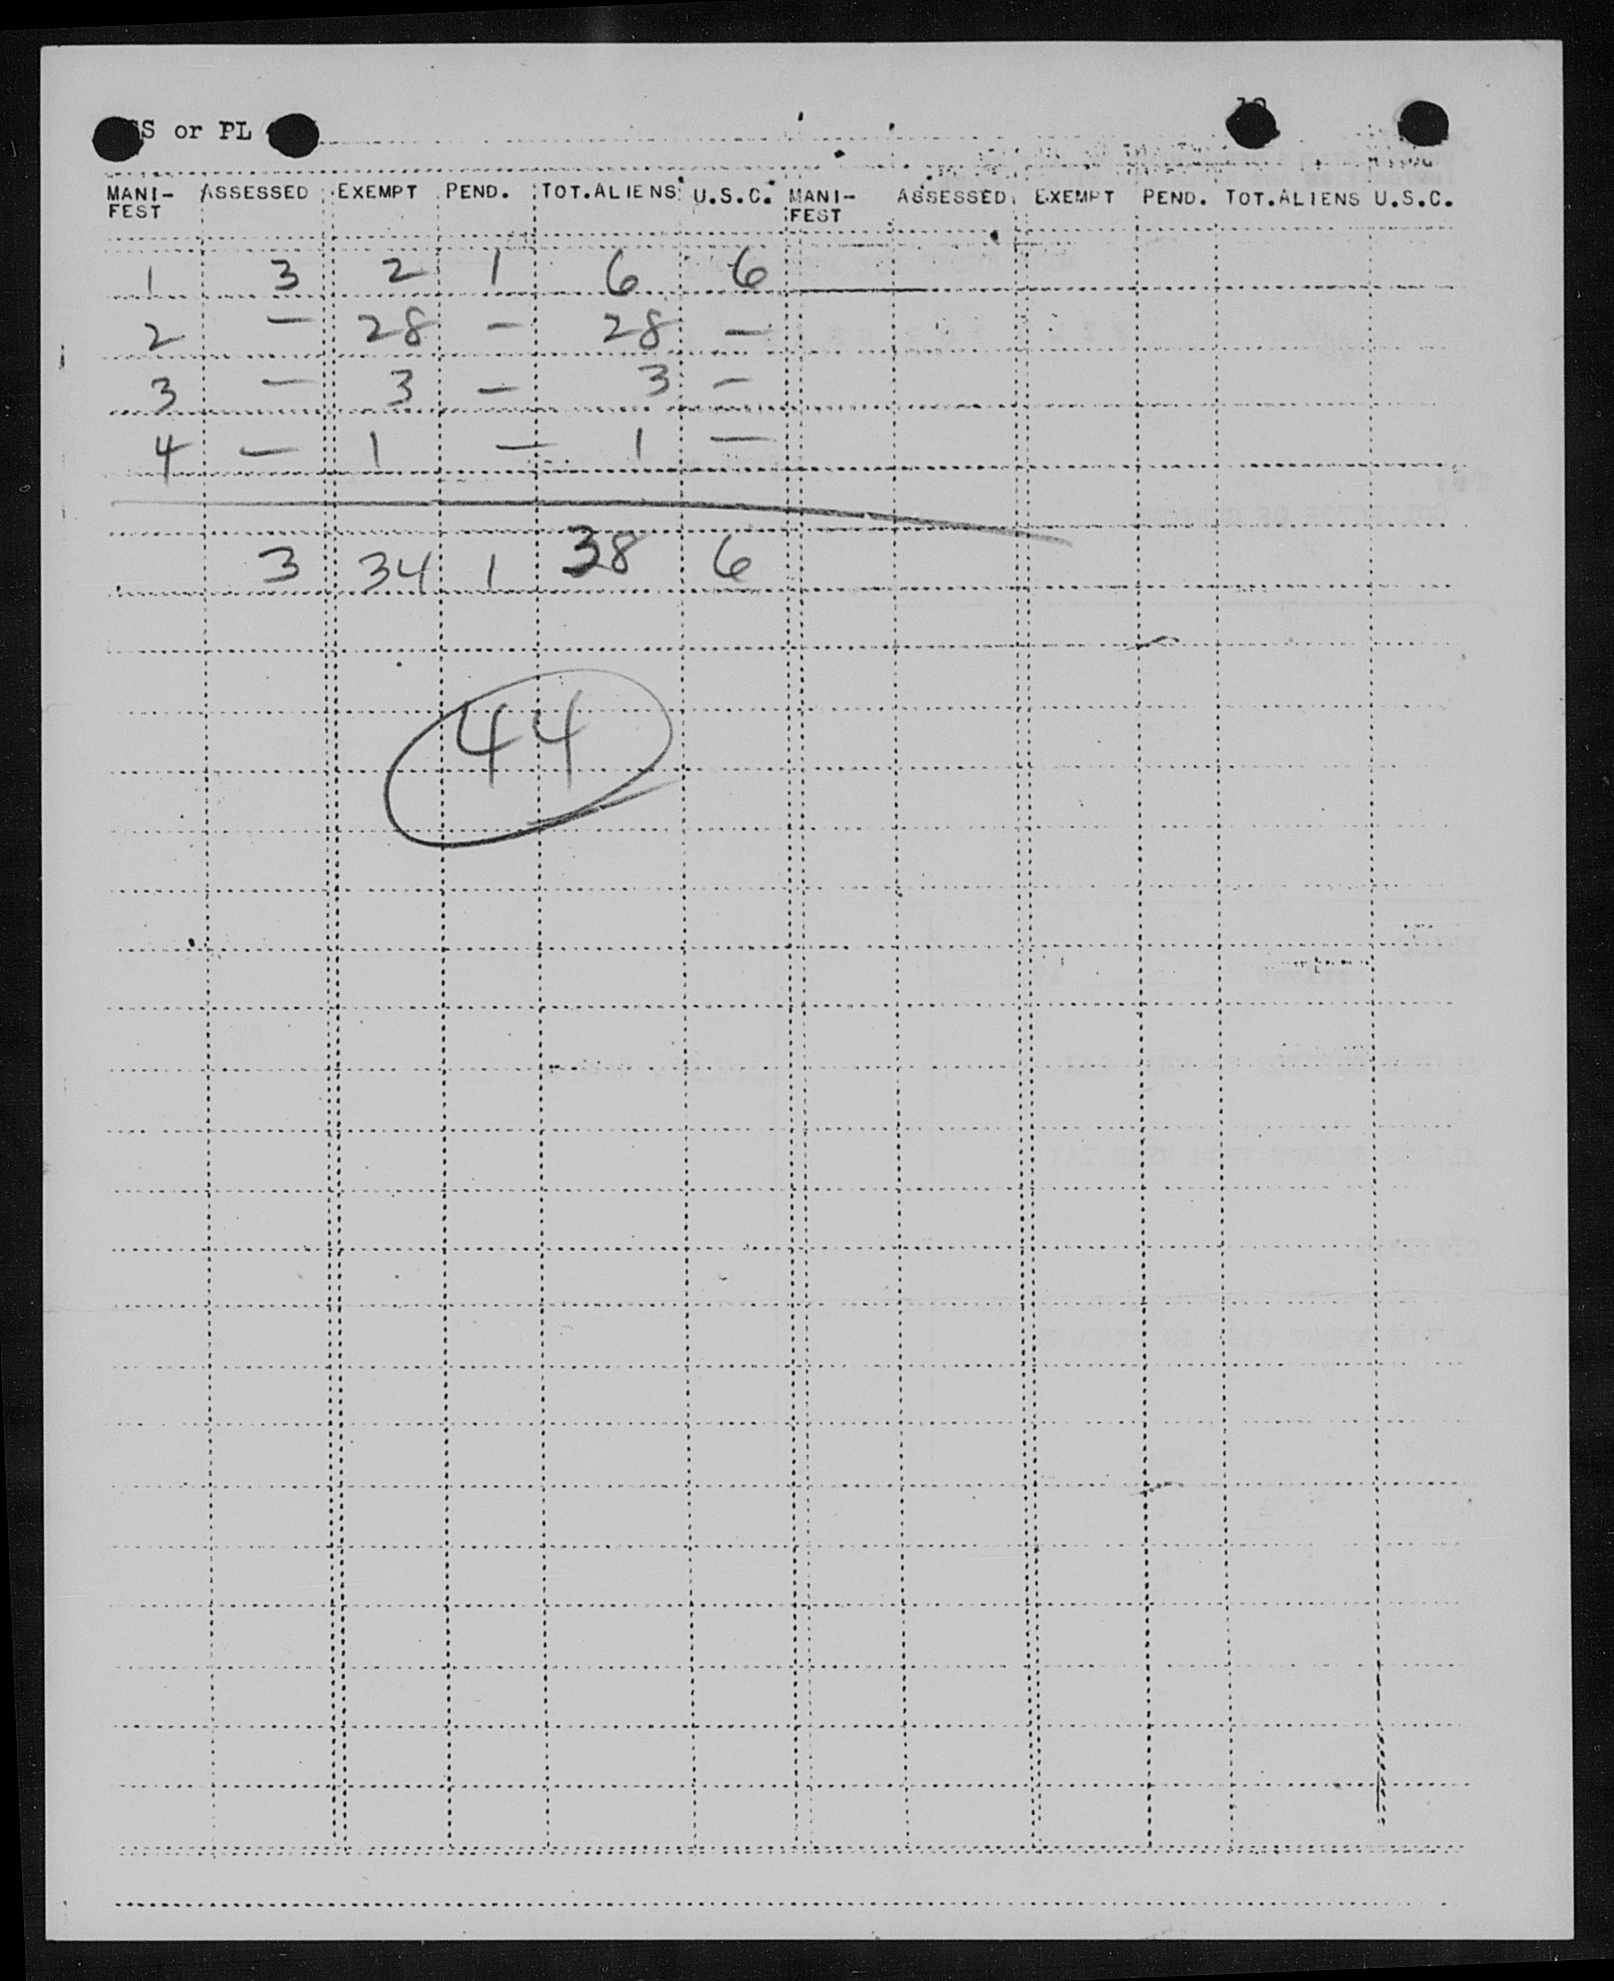 SS or PL
MANI-FEST ASSESSED EXEMPT PEND. TOT.ALIENS U.S.C. MANI-FEST ASSESSED EXEMPT PEND. TOT.ALIENS U.S.C.
1 3 2 1 6 6
2 — 28 — 28 —
3 — 3 — 3 —
4 — 1 — 1 —
3 34 1 38 6
44